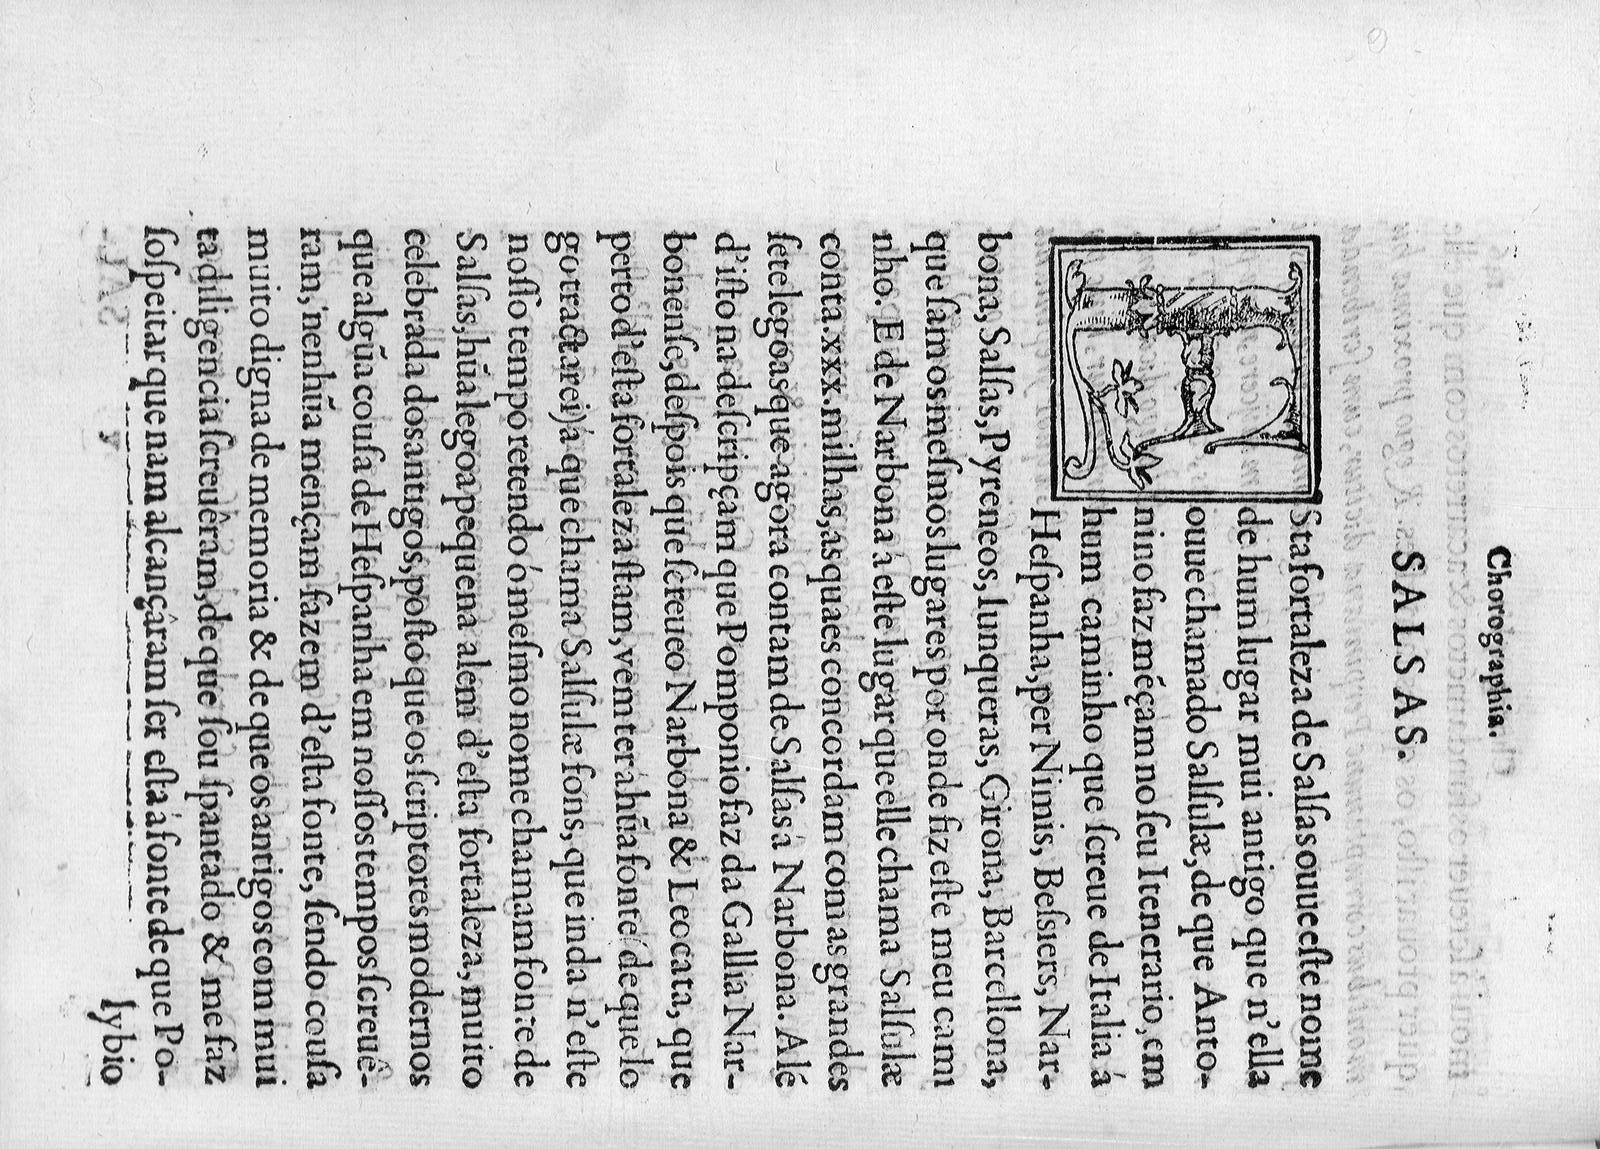 Chorographia.
SALSAS.
ESta fortaleza de Salſas ouue eſte nome
de hum lugar mui antigo que n'ella
ouue chamado Salſulæ, de que Anto-
nino faz mẽçam no ſeu Itenerario, em
hum caminho que ſcreue de Italia á
Heſpanha, per Nimis, Beſsiers, Nar-
bona, Salſas, Pyreneos, Iunqueras, Girona, Barcellona,
que ſam os meſmos lugares por onde fiz eſte meu cami
nho. E de Narbona á eſte lugar que elle chama Salſulæ
conta. xxx. milhas, as quaes concordam com as grandes
ſete legoas que agora contam de Salſas á Narbona. Alé
d'iſto na deſcripçam que Pomponio faz da Gallia Nar-
bonenſe, deſpois que ſcreueo Narbona & Leocata, que
perto d'eſta fortaleza ſtam, vem ter á hũa fonte (de que lo
go tractarei) á que chama Salſulæ fons, que inda n'eſte
noſſo tempo retendo ó meſmo nome chamam fonte de
Salſas, hũa legoa pequena alem d'eſta fortaleza, muito
celebrada dos antigos, poſto que os ſcriptores modernos
que algũa couſa de Heſpanha em noſſos tempos ſcreuê-
ram, nenhũa mençam fazem d'eſta fonte, ſendo couſa
muito digna de memoria & de que os antigos com mui
ta diligencia ſcreuêram, de que ſou ſpantado & me faz
ſoſpeitar que nam alcançâram ſer eſta á fonte de que Po-
lybio